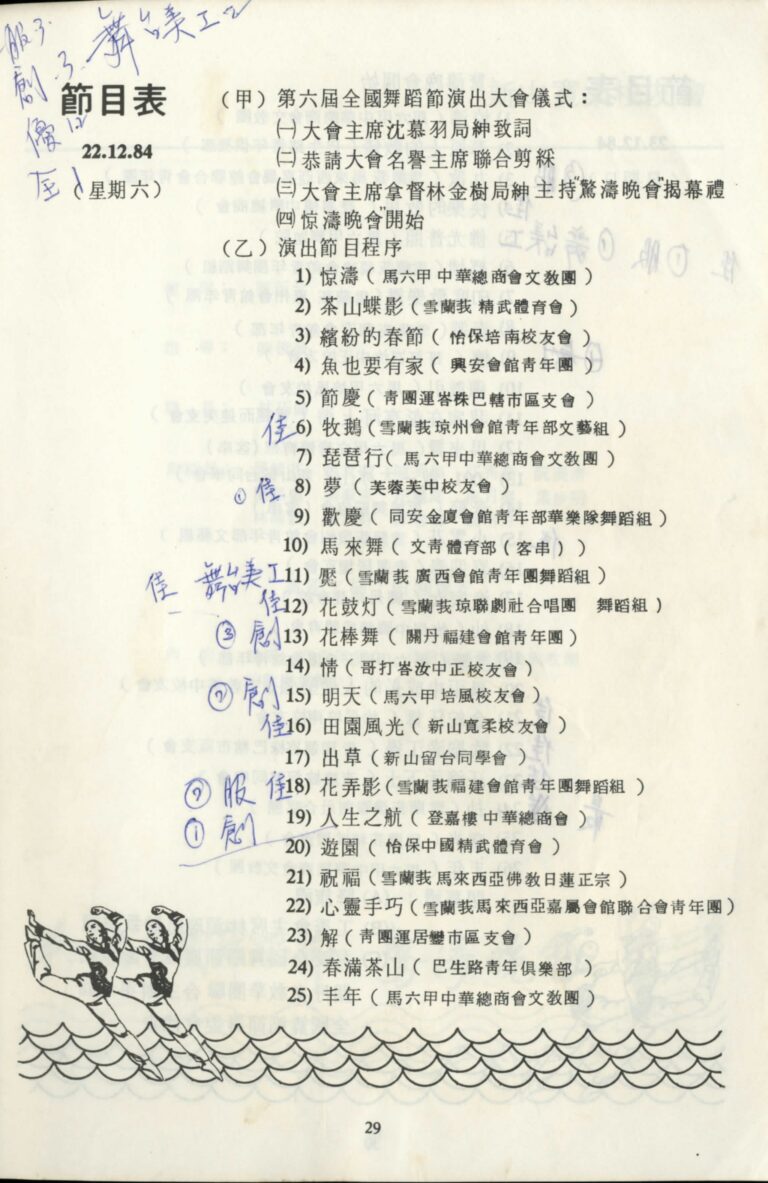 服3
創3 舞台美工2
優12
節目表
22.12.84
(星期六)
(甲) 第六屆全國舞蹈節演出大會儀式：
㈠大會主席沈慕羽局紳致詞
㈡恭請大會名譽主席聯合剪綵
㈢大會主席拿督林金樹局紳主持"驚濤晚會"揭幕禮
㈣惊濤晚會"開始
(乙) 演出節目程序
1) 惊濤(馬六甲中華總商會文敎團)
2) 茶山蝶影(雪蘭莪精武體育會)
3) 繽紛的春節(怡保培南校友會)
4) 魚也要有家(興安會館青年團)
5) 節慶(青團運峇株巴轄市區支會)
佳 6) 牧鵝(雪蘭莪琼州會館青年部文藝組)
7) 琵琶行(馬六甲中華總商會文敎團)
① 佳 8) 夢(芙蓉芙中校友會)
9) 歡慶(同安金廈會館青年部華樂隊舞蹈組)
10) 馬來舞(文青體育部(客串))
佳 舞台美工 11) 魘(雪蘭莪廣西會館青年團舞蹈組)
佳 12) 花鼓灯(雪蘭莪琼聯劇社合唱團 舞蹈組)
③ 創 13) 花棒舞(關丹福建會館青年團)
14) 情(哥打峇汝中正校友會)
② 創 15) 明天(馬六甲培風校友會)
佳 16) 田園風光(新山寬柔校友會)
17) 出草(新山留台同學會)
② 服 佳 18) 花弄影(雪蘭莪福建會館青年團舞蹈組)
① 創 19) 人生之航(登嘉樓中華總商會)
20) 遊園(怡保中國精武體育會)
21) 祝福(雪蘭莪馬來西亞佛敎日蓮正宗)
22) 心靈手巧(雪蘭莪馬來西亞嘉屬會館聯合會青年團)
23) 解(青團運居鑾市區支會)
24) 春滿茶山(巴生路青年俱樂部
25) 丰年(馬六甲中華總商會文敎團)
29